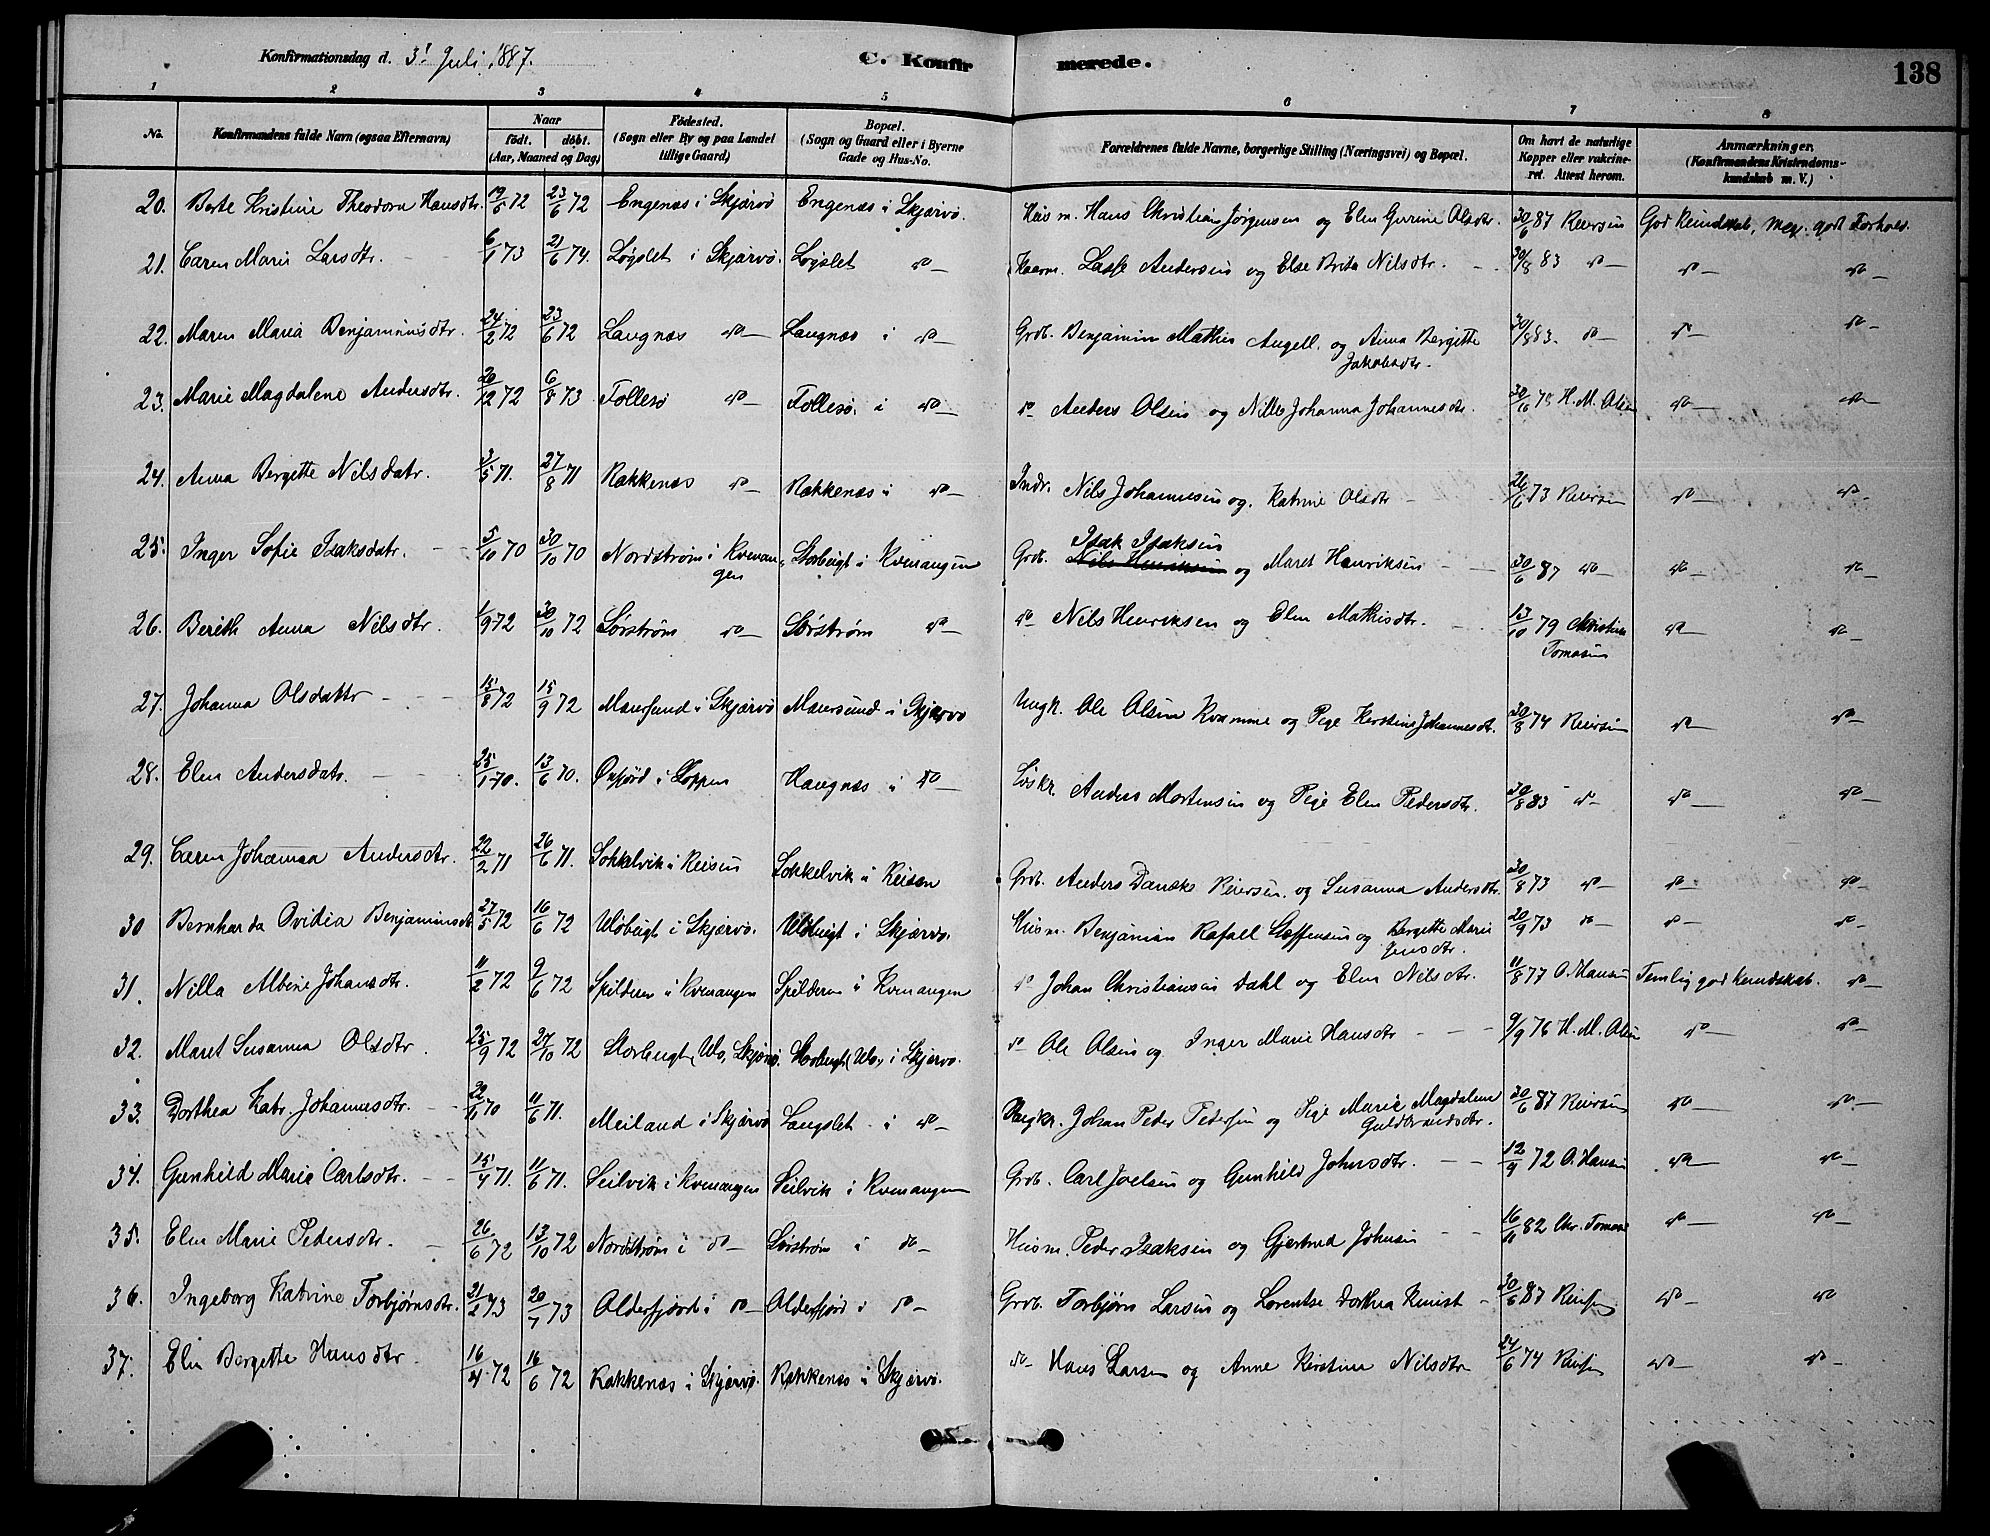 Konfirmationsdag d. 3' Juli 1887.
C. Konfirmerede.
138
1 2 3 4 5 6 7 8
No. Konfirmandens fulde Navn (ogsaa Efternavn) Naar født. døbt. (Aar, Maaned og Dag) Fødested. (Sogn eller By og paa Landet tillige Gaard) Bopæl. (Sogn og Gaard eller i Byerne Gade og Hus-No. Forældrenes fulde Navne, borgerlige Stilling (Næringsvei) og Bopæl. Om havt de naturlige Kopper eller vakcineret. Attest herom. Anmærkninger. (Konfirmandens Kristendomskundskab m. V.)
20. Berte Kristine Theodora Hansdtr. 19/5 72 23/6 72 Engenæs i Skjærvö Engenæs i Skjærvö. Husm. Hans Christian Jörgensen og Elen Gurine Olsdtr. 30/6 87 Reiersen God Kundskab, meg. godt Forhold.
21. Caren Marie Larsdtr. 6/1 73 21/6 74. Løgslet i Skjærvö. Løgslet do Kaarm. Lasse Andersen og Else Brita Nilsdtr. 30/8 83 do do do
22. Maren Maria Benjaminsdtr. 24/2 72 23/6 72 Laugnæs do Laugnæs i do Grdb. Benjamin Mathis Angell. og Anna Bergitte Jakobsdtr. 30/8 83. do do do
23. Marie Magdalene Andersdtr. 20/12 72 6/8 73 Follesö do Follesö i do do Anders Olsen og Nille Johanna Johannesdtr. 30/6 75 H. M. Olsen do do
24. Anna Bergette Nilsdatr. 3/5 71. 27/8 71 Rakkenæs do Rakkenæs i do Indr. Nils Johannesen og Katrine Olsdtr 26/6 73 Reiersen do do
25. Inger Sofie Isaksdatr. 5/10 70 30/10 70 Nordstrøm i Kvenangen Storbugt i Kvenangen Grdb. Nils Henriksen Isak Isaksen og Maret Henriksen 30/6 87 do do do
26. Berith Anna Nilsdtr. 1/9 72 30/10 72 Sørstrøm do Sørstrøm do do Nils Henriksen og Elen Mathisdtr. 13/10 79 Christian Tomasen do do
27. Johanna Olsdattr 15/8 72 15/9 72 Maursund i Skjærvö Maursund i Skjærvö Ungk. Ole Olsen Kvamme og Pige Kerstine Johannesdtr. 30/8 74 Reiersen do do
28. Elen Andersdatr. 25/1 70. 13/6 70. Øxfjord i Loppen Haugnæs i do Løskr. Anders Mortensen og Pige Elen Pedersdtr. 30/8 83 do do do
29. Caren Johanna Andersdtr. 22/2 71 26/6 71. Sokkelvik i Reisen Sokkelvik i Reisen Grdb. Anders Daniels Reiersen og Susanna Andersdtr. 30/8 73 do do do
30 Bernharda Ovidia Benjaminsdt 27/5 72 16/6 72 Uløbugt i Skjærvö. Uløbugt i Skjærvö. Husm. Benjamin Rafael Steffensen og Bergette Marie Jensdtr. 20/9 73 do do do
31. Nilla Albine Johansdtr. 11/2 72 9/6 72 Spilderen i Kvenangen Spilderen i Kvenangen do Johan Christiansen Dahl og Elen Nilsdtr. 11/8 77 O. Hansen Temlig god kundskab. do
32. Maret Susanna Olsdtr. 25/9 72 27/10 72 Storbugt (Ulö, Skjærvö. Storbugt (Ulö, i Skjærvö. do Ole Olsen og Inger Marie Hansdtr 9/9 76 H. M. Olsen do do
33. Dorthea Katr. Johannesdtr. 22/11 70 11/6 71. Meiland i Skjærvö Laugslet i do Ungkr. Johan Peder Pedersen og Pige Marie Magdalena Guldbrandsdtr. 30/6 87 Reiersen do do
34. Gunhild Maria Carlsdtr. 15/4 71. 11/6 71. Seilvik i Kvenangen Seilvik i Kvenangen Grdb. Carl Joelsen og Gunhild Johnsdtr. 12/9 72 O. Hansen do do
35. Elen Marie Pedersdtr. 26/6 72 13/10 72 Nordstrøm i do Sørstrøm i do Husm. Peder Isaksen og Gjertrud Johnsen 16/11 82 Chr. Tomas do do
36. Ingeborg Katrine Torbjørnsdtr. 21/2 73 20/7 73 Alderfjord i do Alderfjord i do Grdb. Torbjørn Larsen og Lorentse Dorthea Knist 30/6 87 Reiersen do do
37. Elen Bergette Hansdtr. 16/4 72 16/6 72 Rakkenæs i Skjærvö. Rakkenæs i Skjærvö. do Hans Larsen og Anne Kirstina Nilsdtr 24/6 74 Reiersen do do